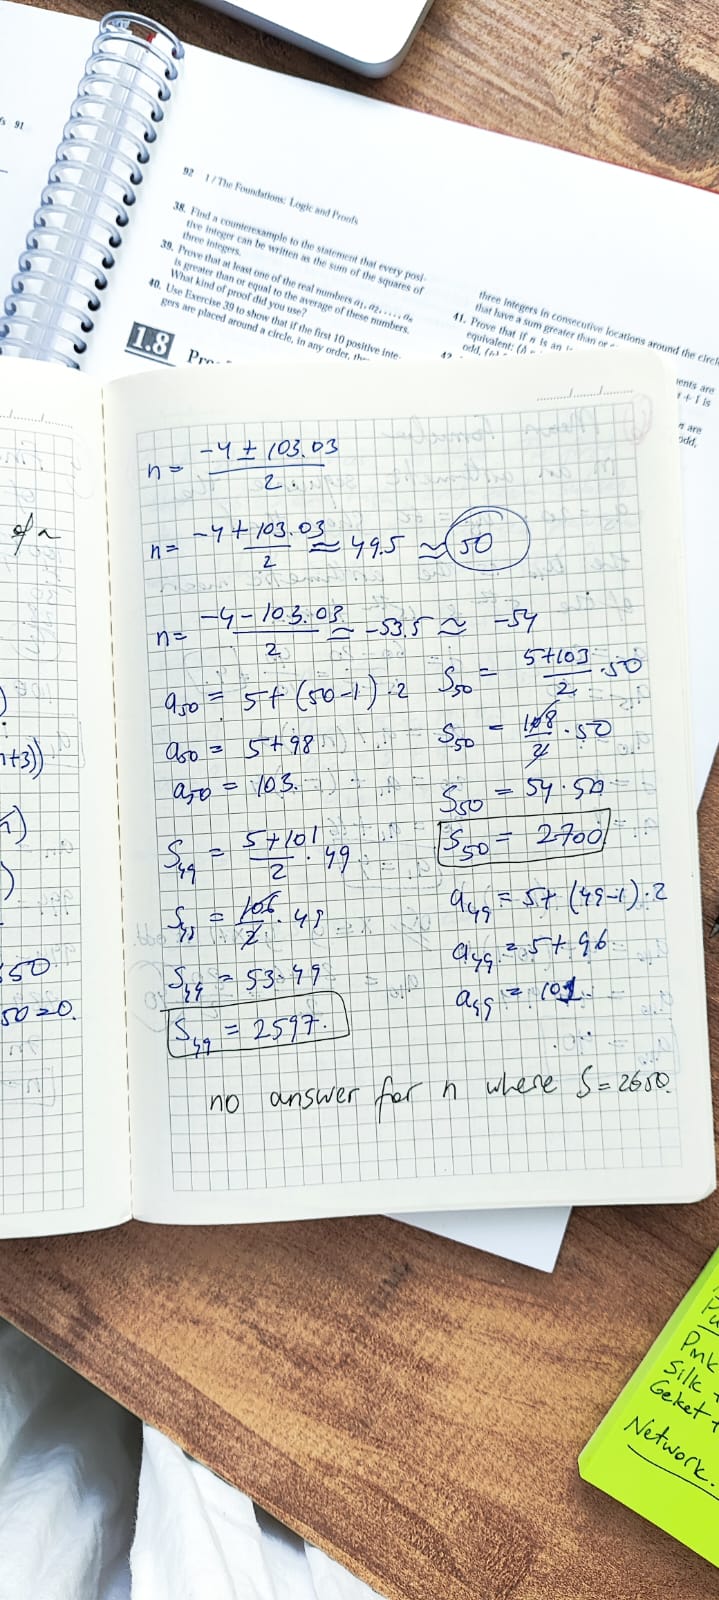 s 91
92 1 / The Foundations: Logic and Proofs
38. Find a counterexample to the statement that every posi-
tive integer can be written as the sum of the squares of
three integers.
39. Prove that at least one of the real numbers a₁, a₂, . . . , aₙ
is greater than or equal to the average of these numbers.
What kind of proof did you use?
40. Use Exercise 39 to show that if the first 10 positive inte-
gers are placed around a circle, in any order, the
three integers in consecutive locations around the circle
that have a sum greater than or
41. Prove that if n is an i
equivalent: (
odd, (
42
ents are
+ 1 is
n are
odd,
1.8 Pro
of n
n+3))
50
50=0.
n = (-4 ± 103.03)/2.
n = (-4 + 103.03)/2 ≈ 49.5 ≈ 50
n = (-4 - 103.03)/2 ≈ -53.5 ≈ -54
a₅₀ = 5 + (50-1) · 2
a₅₀ = 5 + 98
a₅₀ = 103.
S₅₀ = (5+103)/2 · 50
S₅₀ = 108/2 · 50
S₅₀ = 54 · 50
S₅₀ = 2700
S₄₉ = (5+101)/2 · 49
S₄₉ = 106/2 · 49
S₄₉ = 53 · 49
S₄₉ = 2597.
a₄₉ = 5 + (49-1) · 2
a₄₉ = 5 + 96
a₄₉ = 101
no answer for n where S = 2650.
Pmk
Silk +
Geket +
Network.